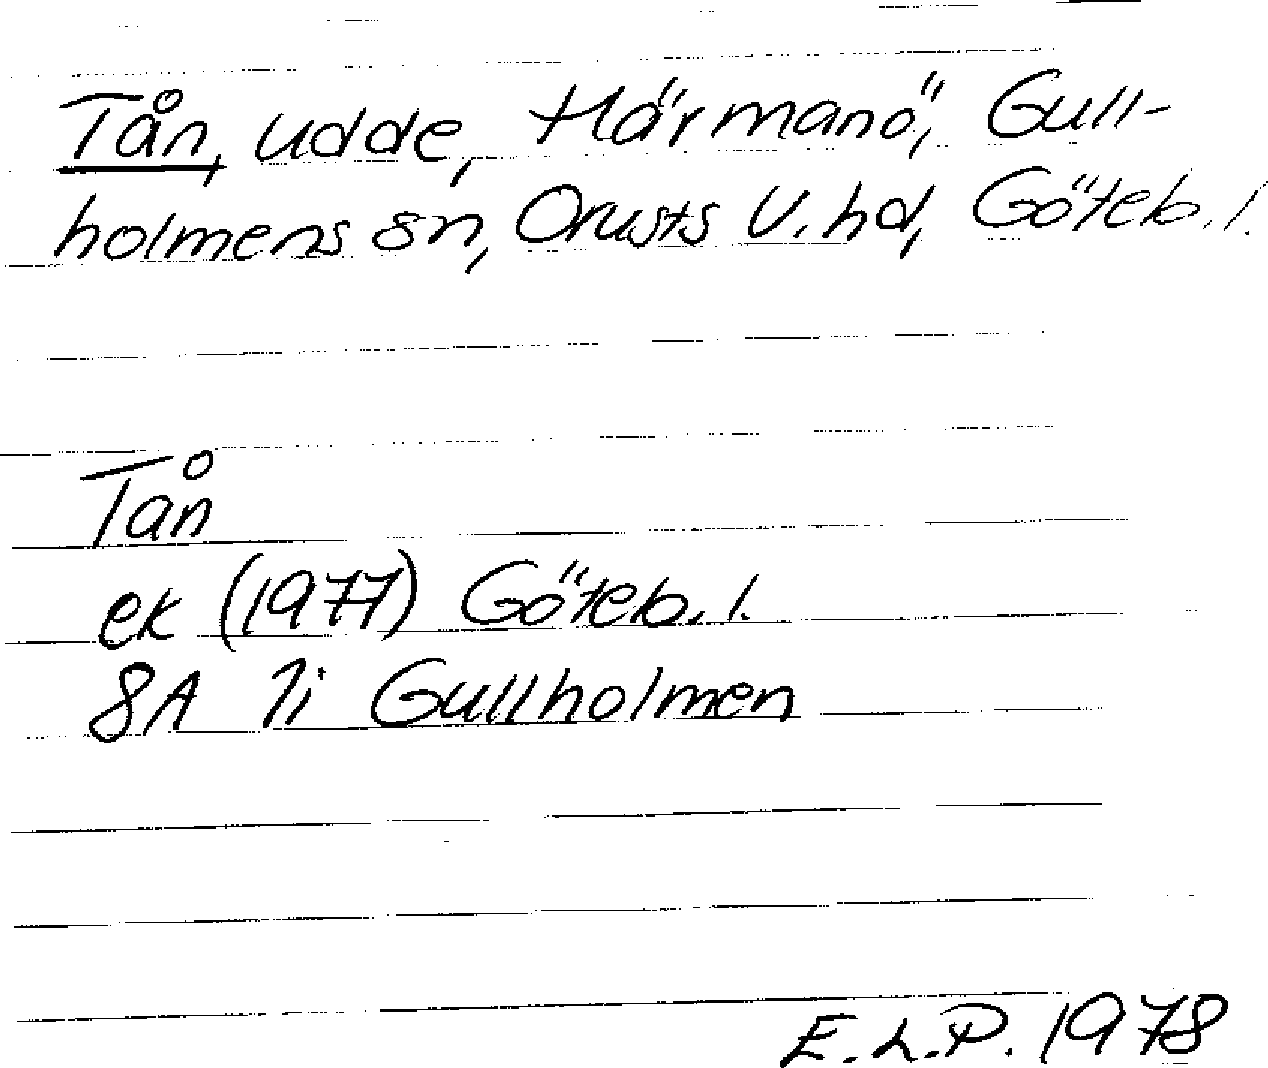 Tån, udde, Härmanö, Gull-
holmens sn, Orusts V. hd, Göteb. l.
Tån
ek (1977) Göteb. l.
8A 7i Gullholmen
E.L.P. 1978